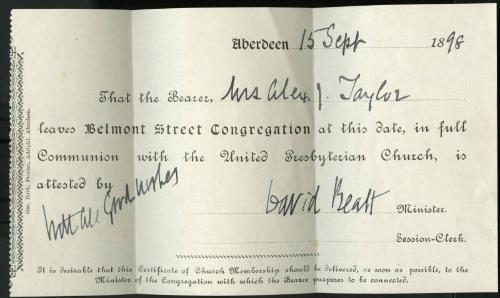 Aberdeen 15 Sept 1898
That the Bearer, Mrs Alex. J. Taylor
leaves Belmont Street Congregation at this date, in full
Communion with the United Presbyterian Church, is
attested by
With all Good wishes
David Beatt Minister.
Session-Clerk.
It is desirable that this Certificate of Church Membership should be delivered, as soon as possible, to the
Minister of the Congregation with which the Bearer purposes to be connected.
Printer, Adelphi, Aberdeen.